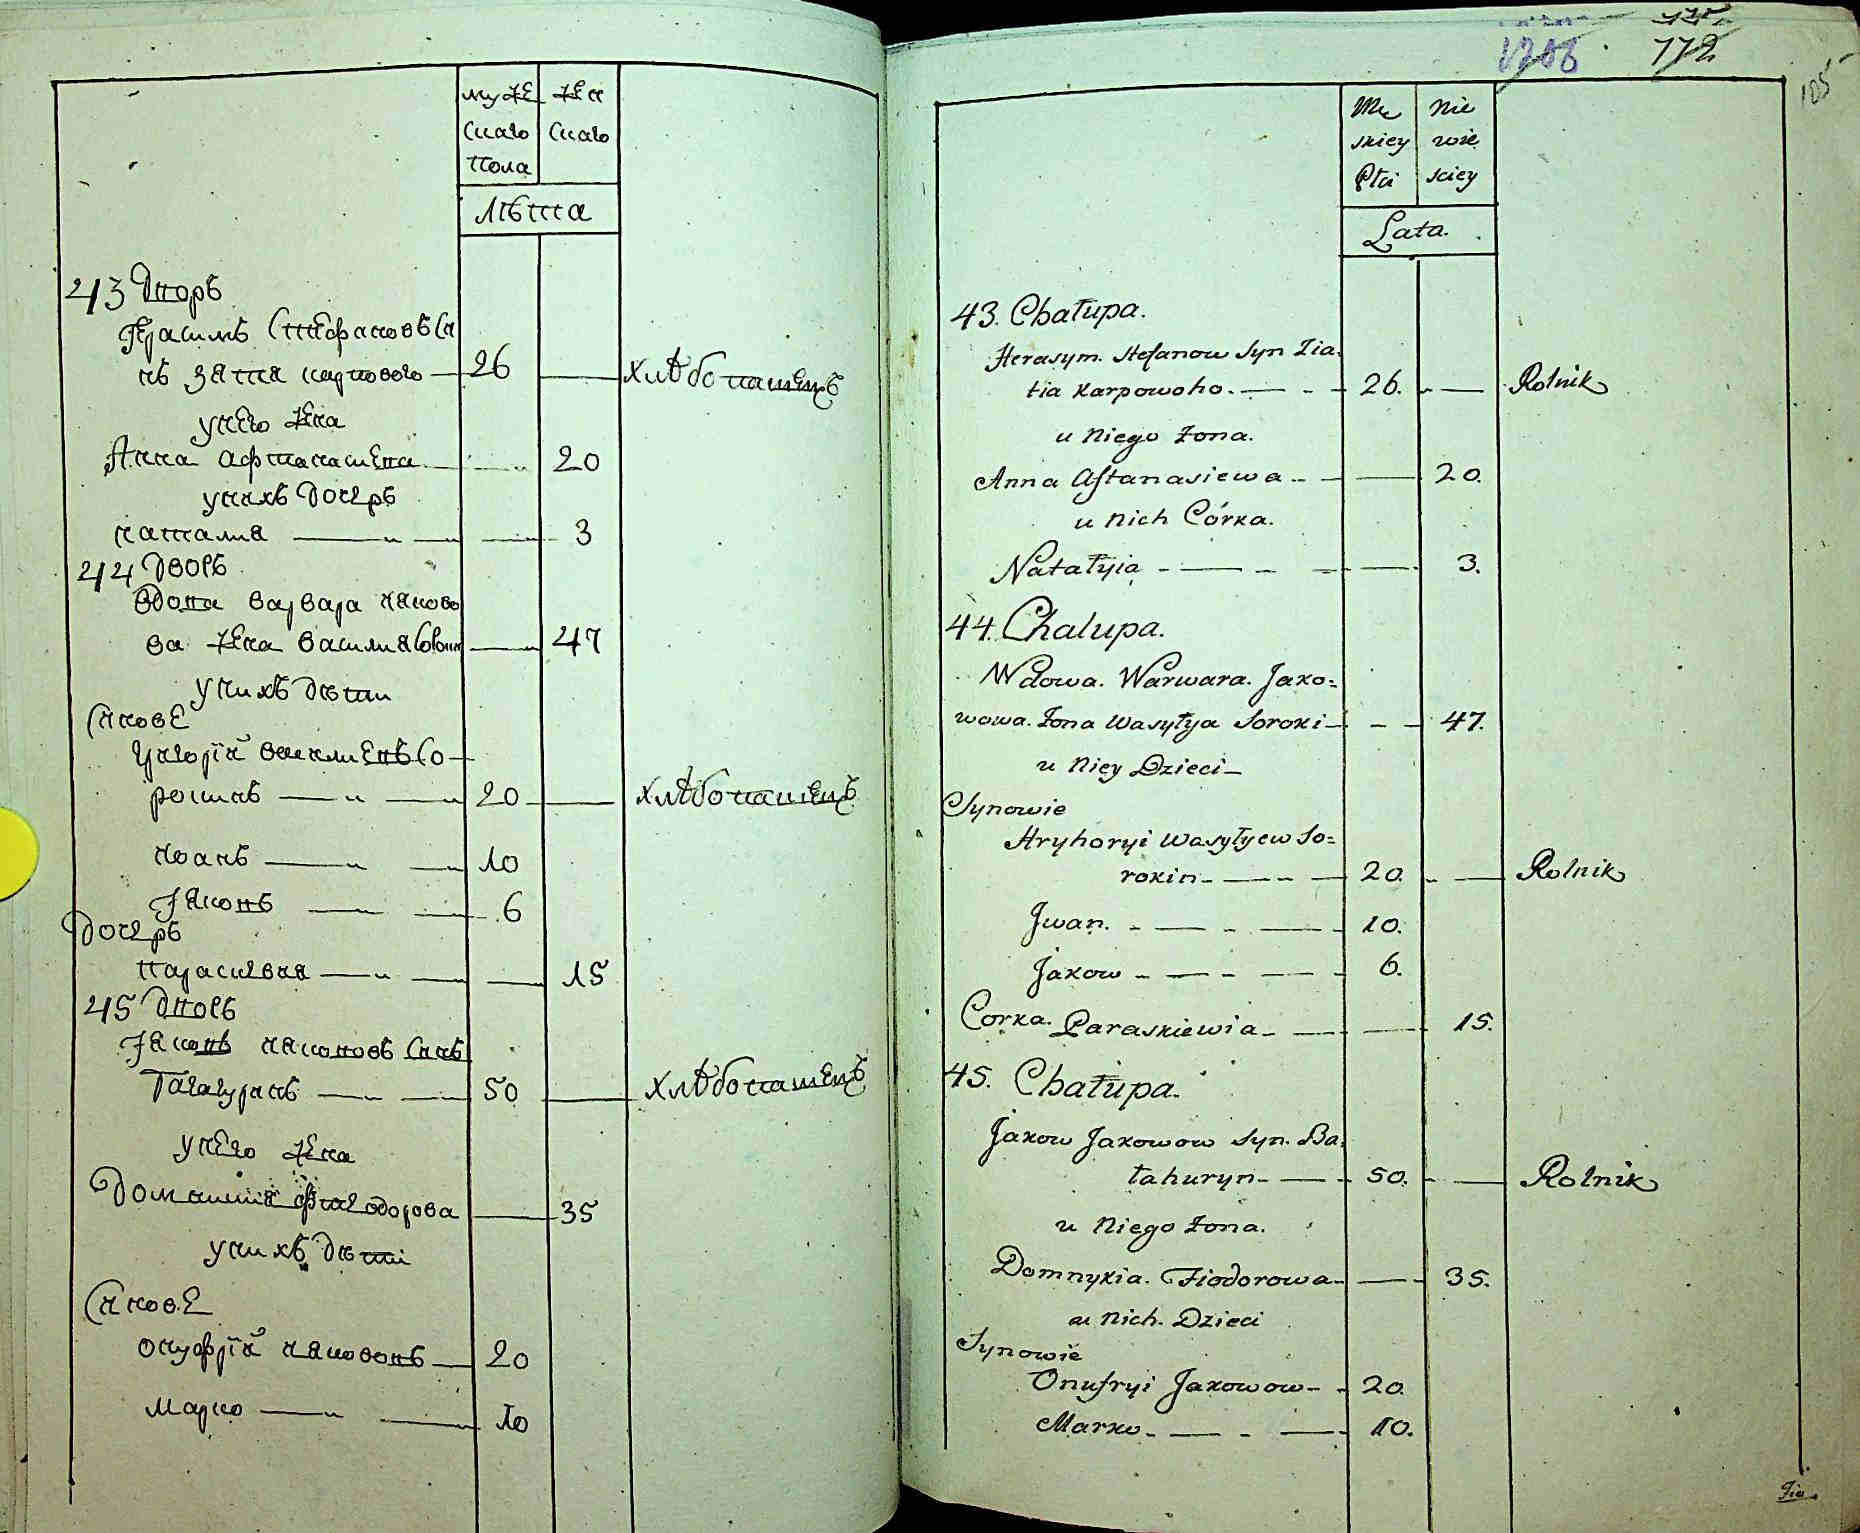 муже
скаго
пола
жен
скаго
лѣта
43 дворъ
Герасимъ Стефановъ сы
нъ зятя карпового — 26 — хлѣбопашецъ
у него жена
Анна Афтанасиева — 20
у нихъ дочеръ
наталия — 3
44 дворъ
вдова варвара яково
ва жена василия Сороки — 47
у нихъ дѣти
Сынове
григорїй василиевъ Со-
рокинъ — 20 — хлѣбопашецъ
иоанъ — 10
Яковъ — 6
дочеръ
параскевия — 15
45 дворъ
Яковъ якововъ сынъ
Балагуринъ — 50 — хлѣбопашецъ
у него жена
Домникия Фиеодорова — 35
у нихъ дѣти
Сынове
онуфрїй якововъ — 20
Марко — 10
1206 . 172
105
Mę
skiey
Płci
Nie
wie
sciey
Lata.
43. Chałupa.
Herasym. Stefanow Syn Zia=
tia Karpowoho. — 26. — Rolnik
u Niego Żona.
Anna Aftanasiewa — 20.
u Nich Córka.
Natałyia — 3.
44. Chalupa.
Wdowa. Warwara. Jako=
wowa. Żona Wasyłya Soroki — 47.
u Niey Dzieci —
Synowie
Hryhoryi Wasyłyew So=
rokin — 20. — Rolnik
Jwan. — 10.
Jakow — 6.
Corka. Paraskiewia — 15.
45. Chałupa.
Jakow Jakowow Syn. Ba=
łahuryn — 50. — Rolnik
u Niego Żona.
Domnykia. Fiodorowa — 35.
u Nich. Dzieci
Synowie
Onufryi Jakowow — 20.
Marko — 10.